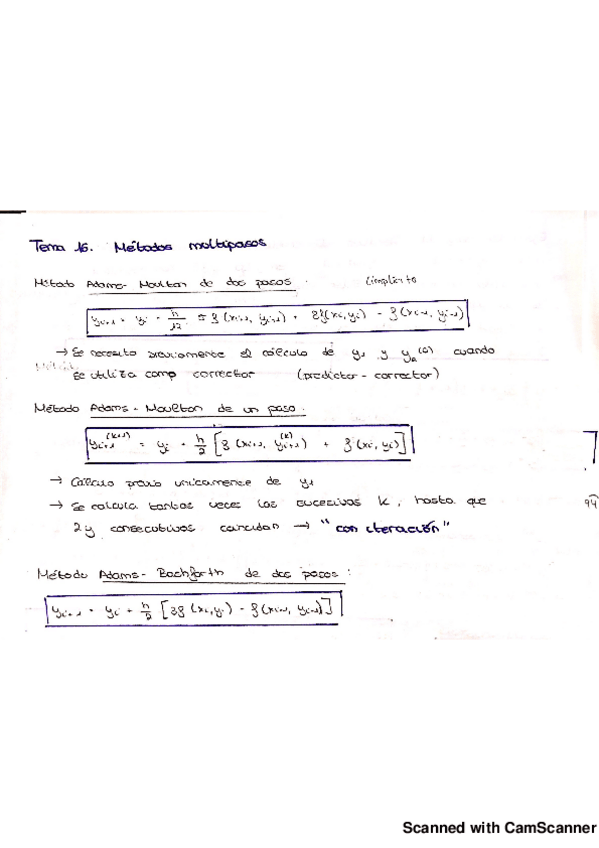 Tema 16. Métodos multipasos
Método Adams-Moulton de dos pasos. (implícito
y_{i+1} = y_i + h/12 5 f(x_{i+1}, y_{i+1}) + 8f(x_i, y_i) - f(x_{i-1}, y_{i-1})
→ Se necesita previamente el cálculo de y_1 y y^{(0)} cuando
se utiliza como corrector (predictor-corrector)
Método Adams-Moulton de un paso:
y_{i+1}^{(k+1)} = y_i + h/2 [f(x_{i+1}, y_{i+1}^{(k)}) + f(x_i, y_i)]
→ Cálculo previo unicamente de y_1
→ Se calcula tantas veces las sucesivas k, hasta que
2 y consecutivos coincidan → "con iteración"
94
Método Adams-Bachforth de dos pasos:
y_{i+1} = y_i + h/2 [3f(x_i, y_i) - f(x_{i-1}, y_{i-1})]
Scanned with CamScanner